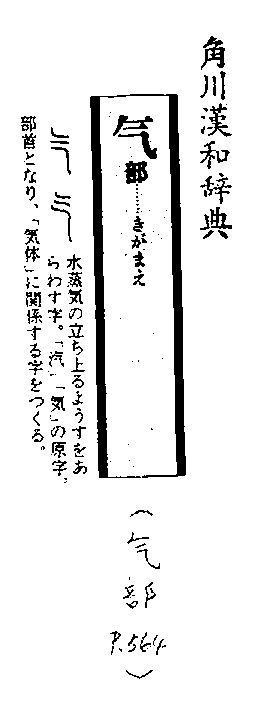 角川漢和辞典
气部……きがまえ
水蒸気の立ち上るようすをあ
らわす字。「汽」「気」の原字。
部首となり、「気体」に関係する字をつくる。
(气部 P.564)